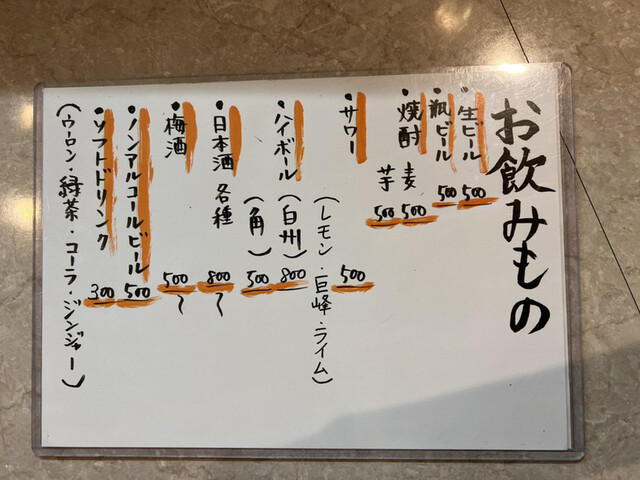 お飲みもの
・生ビール 500
・瓶ビール 500
・焼酎 麦 500
芋 500
・サワー 500
(レモン・巨峰・ライム)
・ハイボール (白州) 800
(角) 500
・日本酒 各種 800~
・梅酒 500~
・ノンアルコールビール 500
・ソフトドリンク 300
(ウーロン・緑茶・コーラ・ジンジャー)